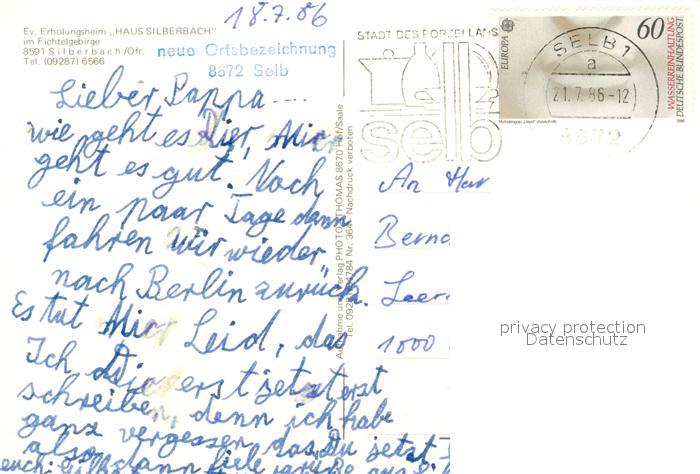 18.7.86
Ev. Erholungsheim „HAUS SILBERBACH"
im Fichtelgebirge
8591 Silberbach/Ofr.
Tel. (09287) 6566
neue Ortsbezeichnung
8672 Selb
Lieber Pappa....
wie geht es Dier, Mier
geht es gut. Noch
ein paar Tage dann
fahren wir wieder
nach Berlin zurück.
Es tut Mier Leid, das
Ich Dier erst jetzt erst
schreiben, denn ich habe
ganz vergessen das Du jetzt
also dann fiele grüße aus
Aufnahme und Verlag PHOTO-THOMAS 8670 Hof/Saale
Nachdruck verboten
STADT DES PORZELLANS
selb
SELB 1
a
21.7.86-12
8672
EUROPA
60
WASSERREINHALTUNG
DEUTSCHE BUNDESPOST
An Herr
Bernd
Leer
1000
privacy protection
Datenschutz